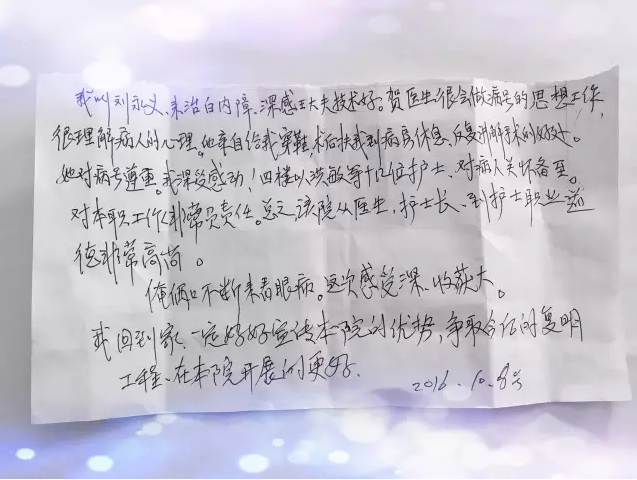 我叫刘永义、来治白内障、深感王大夫技术好。贺医生很会做病号的思想工作,
很理解病人的心理。他亲自给我穿鞋,术后扶我到病房休息,反复讲解手术的好处。
她对病号尊重。我深受感动!四楼以洪敏等12位护士、对病人关怀备至。
对本职工作非常负责任。总之该院从医生,护士长、到护士职业道
德非常高尚。
俺俩口不断来看眼病。这次感受深、收获大。
我回到家、一定好好宣传本院的优势,争取今后的复明
工程、在本院开展的更好.
2016.10.8号